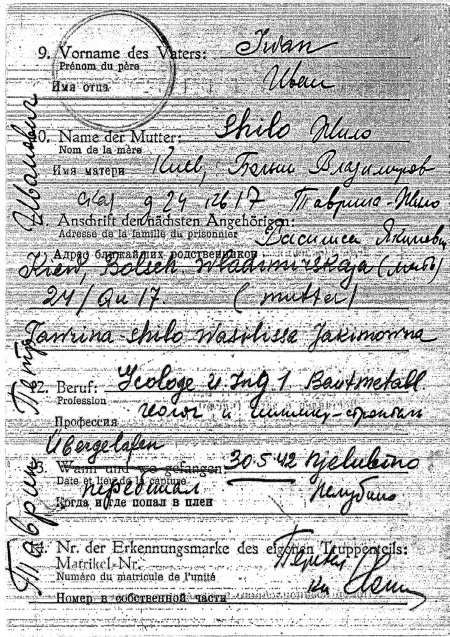 9. Vorname des Vaters: Iwan
Prénom du père
Имя отца Иван
10. Name der Mutter: Shilo Жило
Nom de la mère
Имя матери Киев, Больш Владимиров
ская д 24 кв 17 Таврина-Жило
Anschrift der nächsten Angehörigen:
Adresse de la famille du prisonnier Василиса Якимов
Адрес ближайших родственников
Kiew, Bolsch. Wladimirskaja (мать)
24/Qu 17. (mutter)
Tawrina-Shilo Wasilissa Jakimowna
12. Beruf: Geologe u Ing
Profession
Профессия геолог и
Übergelafen
Wann und wo gefangen: 30.5.42
Date et lieu de la capture
перебежал
Когда и где попал в плен
Nr. der Erkennungsmarke des eigenen Truppenteils:
Matrikel-Nr.
Numéro du matricule de l'unité
Номер в собственной части
Таврин Петр Иванович